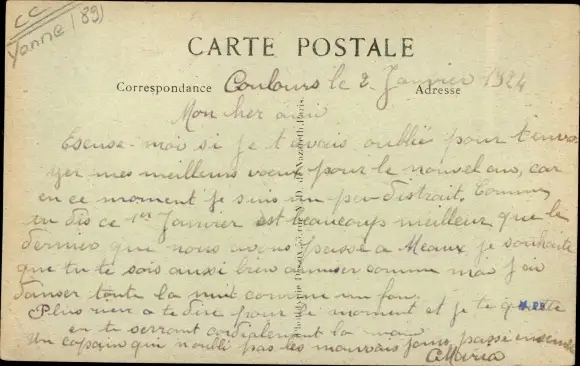 CC
Yonne (89)
CARTE POSTALE
Correspondance
Adresse
Coulours le 2 Janvier 1924
Mon cher ami
Escuse-moi si je t'avais oublié pour t'envo
yer mes meilleurs vœux pour le nouvel ans, car
en ce moment je suis un peu distrait. Comme
tu dis ce 1er Janvier est beaucoups meilleur que le
dernier que nous avons passé a Meaux, je souhaite
que tu te sois aussi bien amuser comme moi j'ai
danser toute la nuit comme un fou.
Plus rien a te dire pour le moment et je te quitte
en te serrant cordialement la main
Un copain qui n'oubli pas les mauvais jours passé ensemble